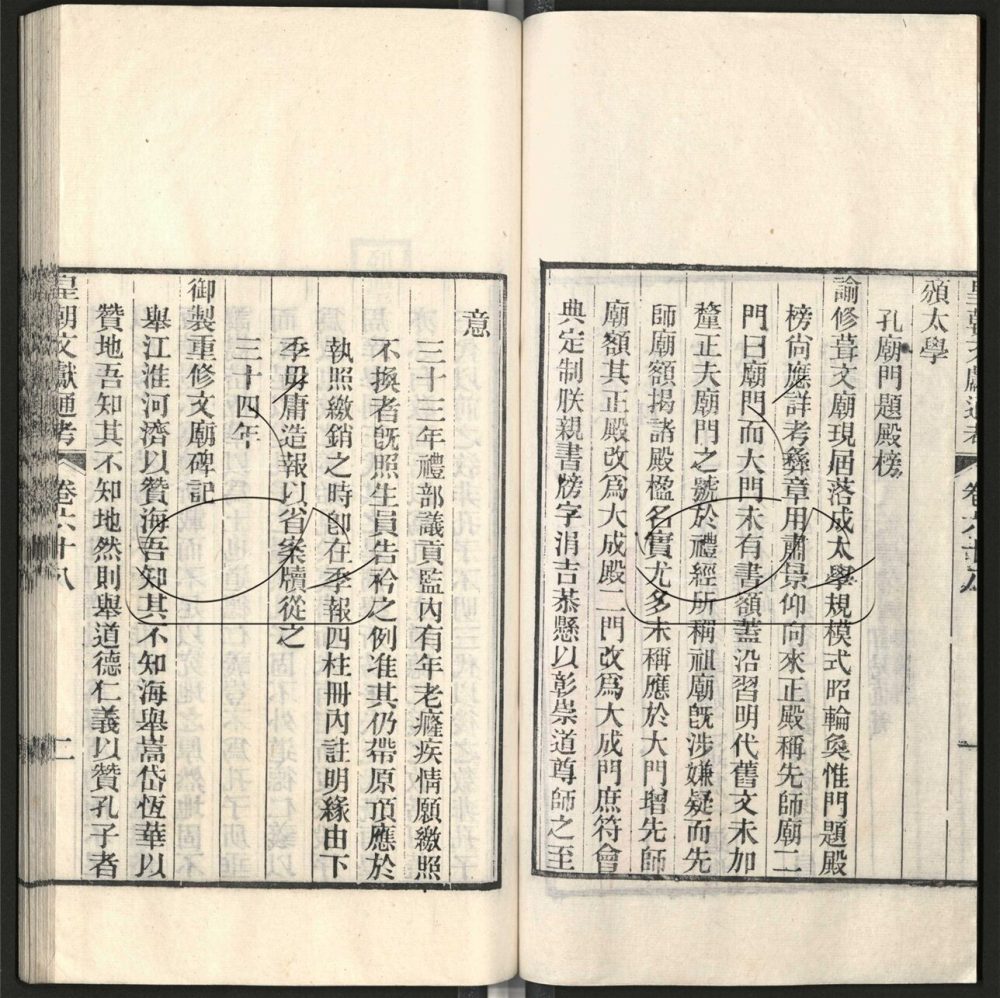 皇朝文獻通考 卷六十八 一
頒太學
孔廟門題殿榜
諭修葺文廟現屆落成太學規模式昭輪奐惟門題殿
榜尚應詳考彝章用肅景仰向來正殿稱先師廟二
門曰廟門而大門未有書額蓋沿習明代舊文未加
釐正夫廟門之號於禮經所稱祖廟旣涉嫌疑而先
師廟額揭諸殿楹名實尤多未稱應於大門增先師
廟額其正殿改爲大成殿二門改爲大成門庶符會
典定制朕親書榜字涓吉恭懸以彰崇道尊師之至
意
三十三年禮部議貢監內有年老癃疾情願繳照
不換者旣照生員告衿之例准其仍帶原頂應於
執照繳銷之時卽在季報四柱冊內註明緣由下
季毋庸造報以省案牘從之
三十四年
御製重修文廟碑記
舉江淮河濟以贊海吾知其不知海舉嵩岱恆華以
贊地吾知其不知地然則舉道德仁義以贊孔子者
皇朝文獻通考 卷六十八 二